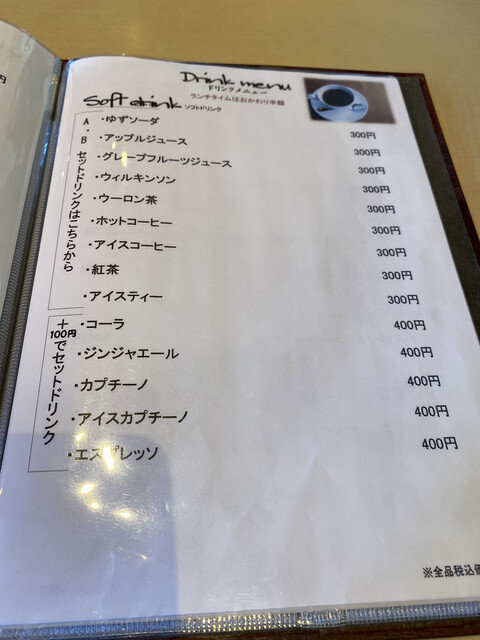 円
Drink menu
ドリンクメニュー
ランチタイムはおかわり半額
Soft drink ソフトドリンク
A・Bセットドリンクはこちらから
・ゆずソーダ 300円
・アップルジュース 300円
・グレープフルーツジュース 300円
・ウィルキンソン 300円
・ウーロン茶 300円
・ホットコーヒー 300円
・アイスコーヒー 300円
・紅茶 300円
・アイスティー 300円
+100円でセットドリンク
・コーラ 400円
・ジンジャエール 400円
・カプチーノ 400円
・アイスカプチーノ 400円
・エスプレッソ 400円
※全品税込価